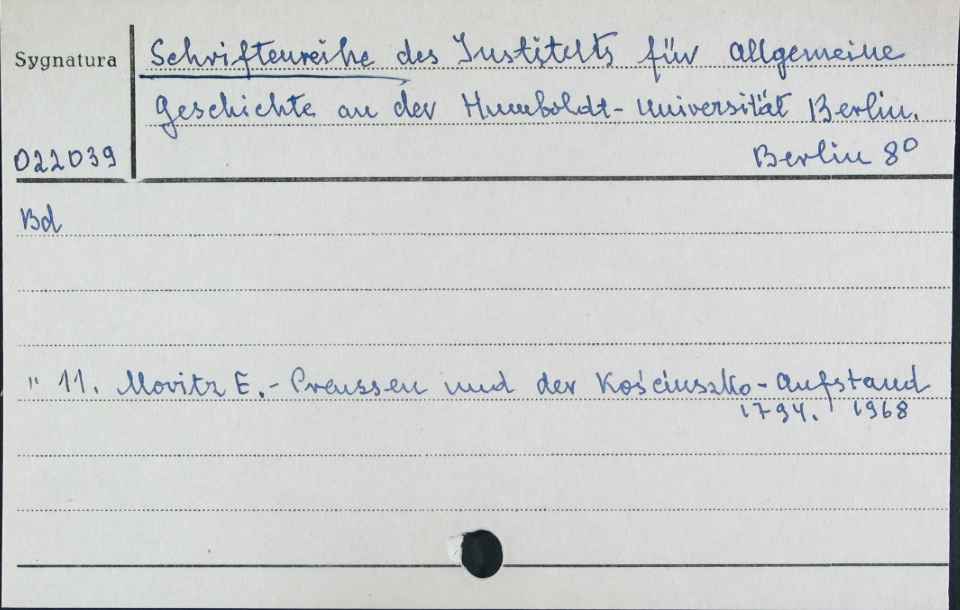 Sygnatura
Schriftenreihe des Instituts für allgemeine
Geschichte an der Humboldt-Universität Berlin.
022039
Berlin 8°
Bd
" 11. Moritz E. - Preussen und der Kościuszko-Aufstand
1794. 1968